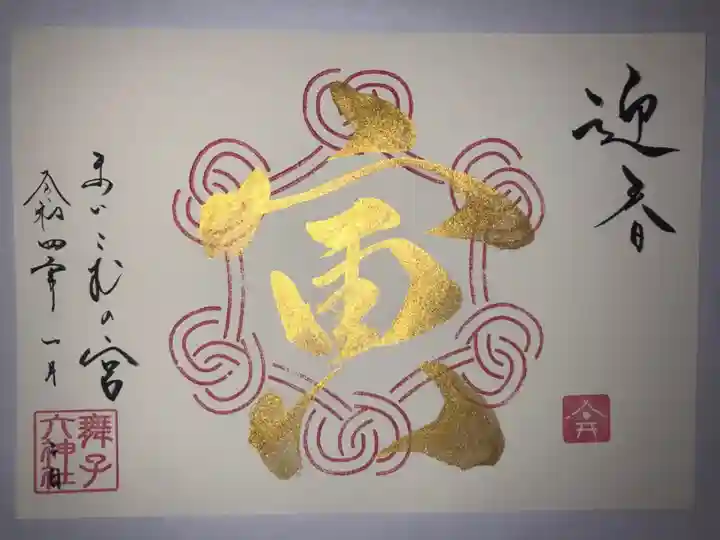 迎春
寅
まいこむの宮
令和四年 一月
舞子
六神社